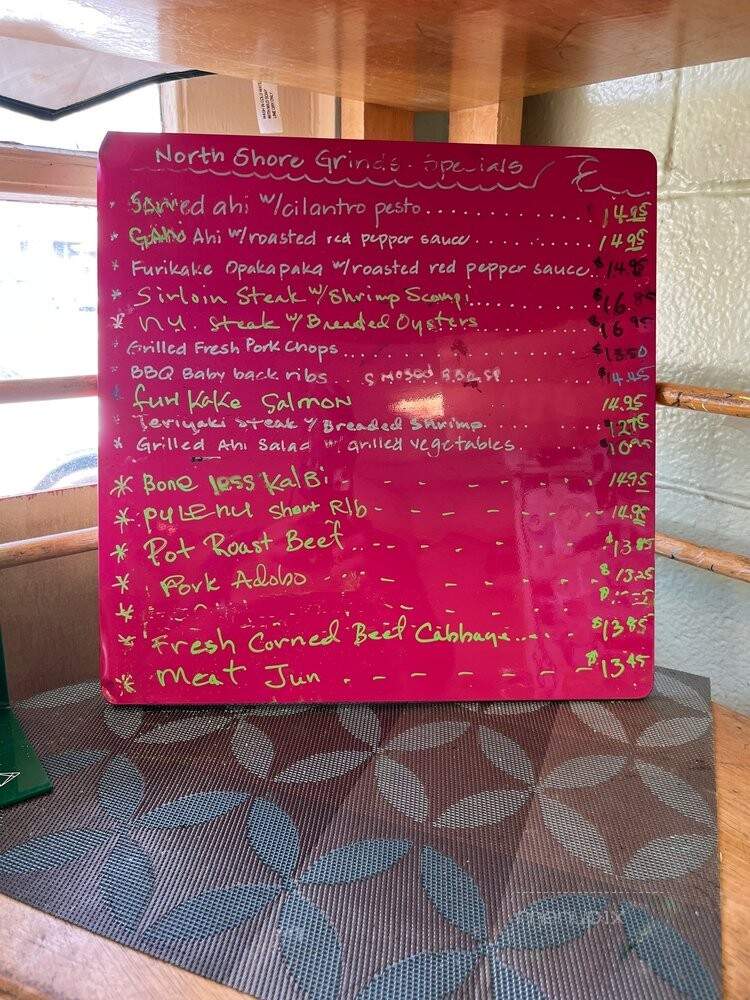 North Shore Grinds. Specials
ahi w/cilantro pesto 14.95
* Ahi w/roasted red pepper sauce 14.95
* Furikake Opakapaka w/roasted red pepper sauce $14.95
* Sirloin Steak w/Shrimp Scampi $16.95
* N.Y. Steak w/Breaded Oysters $16.95
* Grilled Fresh Pork Chops $13.50
* BBQ Baby back ribs $14.45
* furikake Salmon 14.95
* Teriyaki Steak w/ Breaded Shrimp
* Grilled Ahi Salad w/ grilled vegetables
* Boneless KalBi 14.95
* PYLEHU Short Rib 14.95
* Pot Roast Beef $13.85
* Pork Adobo $13.25
*
* Fresh Corned Beef Cabbage $13.85
* Meat Jun $13.45
menupix